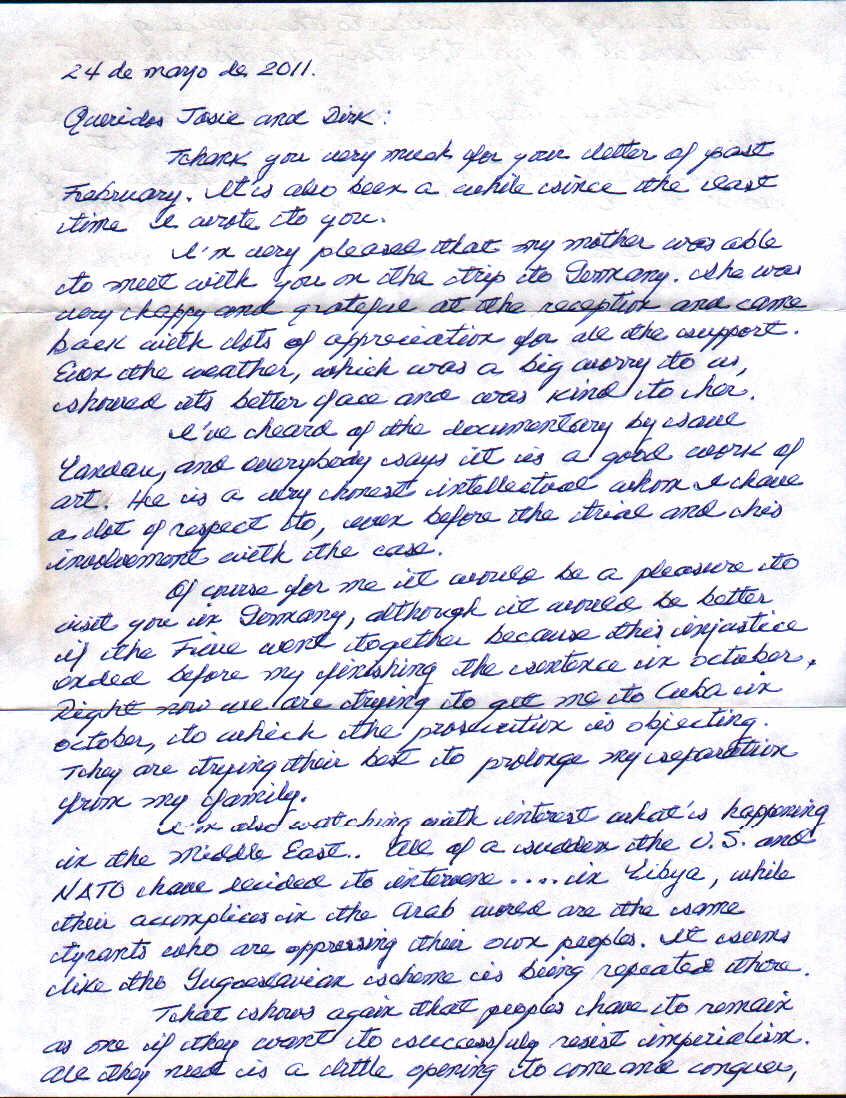 24 de mayo de 2011.
Queridos Josie and Dirk:
Thank you very much for your letter of past
February. It is also been a while since the last
time I wrote to you.
I'm very pleased that my mother was able
to meet with you on the trip to Germany. She was
very happy and grateful at the reception and came
back with lots of appreciation for all the support.
Even the weather, which was a big worry to us,
showed its better face and was kind to her.
I've heard of the documentary by Saul
Landau, and everybody says it is a good work of
art. He is a very honest intellectual whom I have
a lot of respect to, even before the trial and his
involvement with the case.
Of course for me it would be a pleasure to
visit you in Germany, although it would be better
if the Five went together because this injustice
ended before my finishing the sentence in october.
Right now we are trying to get me to Cuba in
october, to which the prosecution is objecting.
They are trying their best to prolonge my separation
from my family.
I'm also watching with interest what's happening
in the Middle East.. All of a sudden the U.S. and
NATO have decided to intervene .... in Libya, while
their acomplices in the Arab world are the same
tyrants who are oppressing their own peoples. It seems
like the Yugoeslavian scheme is being repeated there.
That shows again that peoples have to remain
as one if they want to successfuly resist imperialism.
All they need is a little opening to come and conquer,